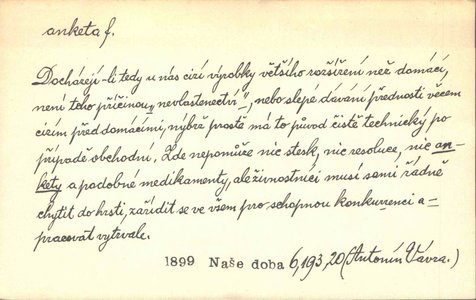 anketa f.
Docházejí-li tedy u nás cizí výrobky většího rozšíření než domácí,
není toho příčinou „nevlastenectví“, nebo slepé dávání přednosti věcem
cizím před domácími, nýbrž prostě má to původ čistě technický po
případě obchodní. Zde nepomůže nic stesk, nic resoluce, nic an-
kety a podobné medikamenty, ale živnostníci musí sami řádně
chytit do hrsti, zařídit se ve všem pro schopnou konkurenci a
pracovat vytrvale.
1899 Naše doba 6, 193, 20 (Antonín Vávra.)